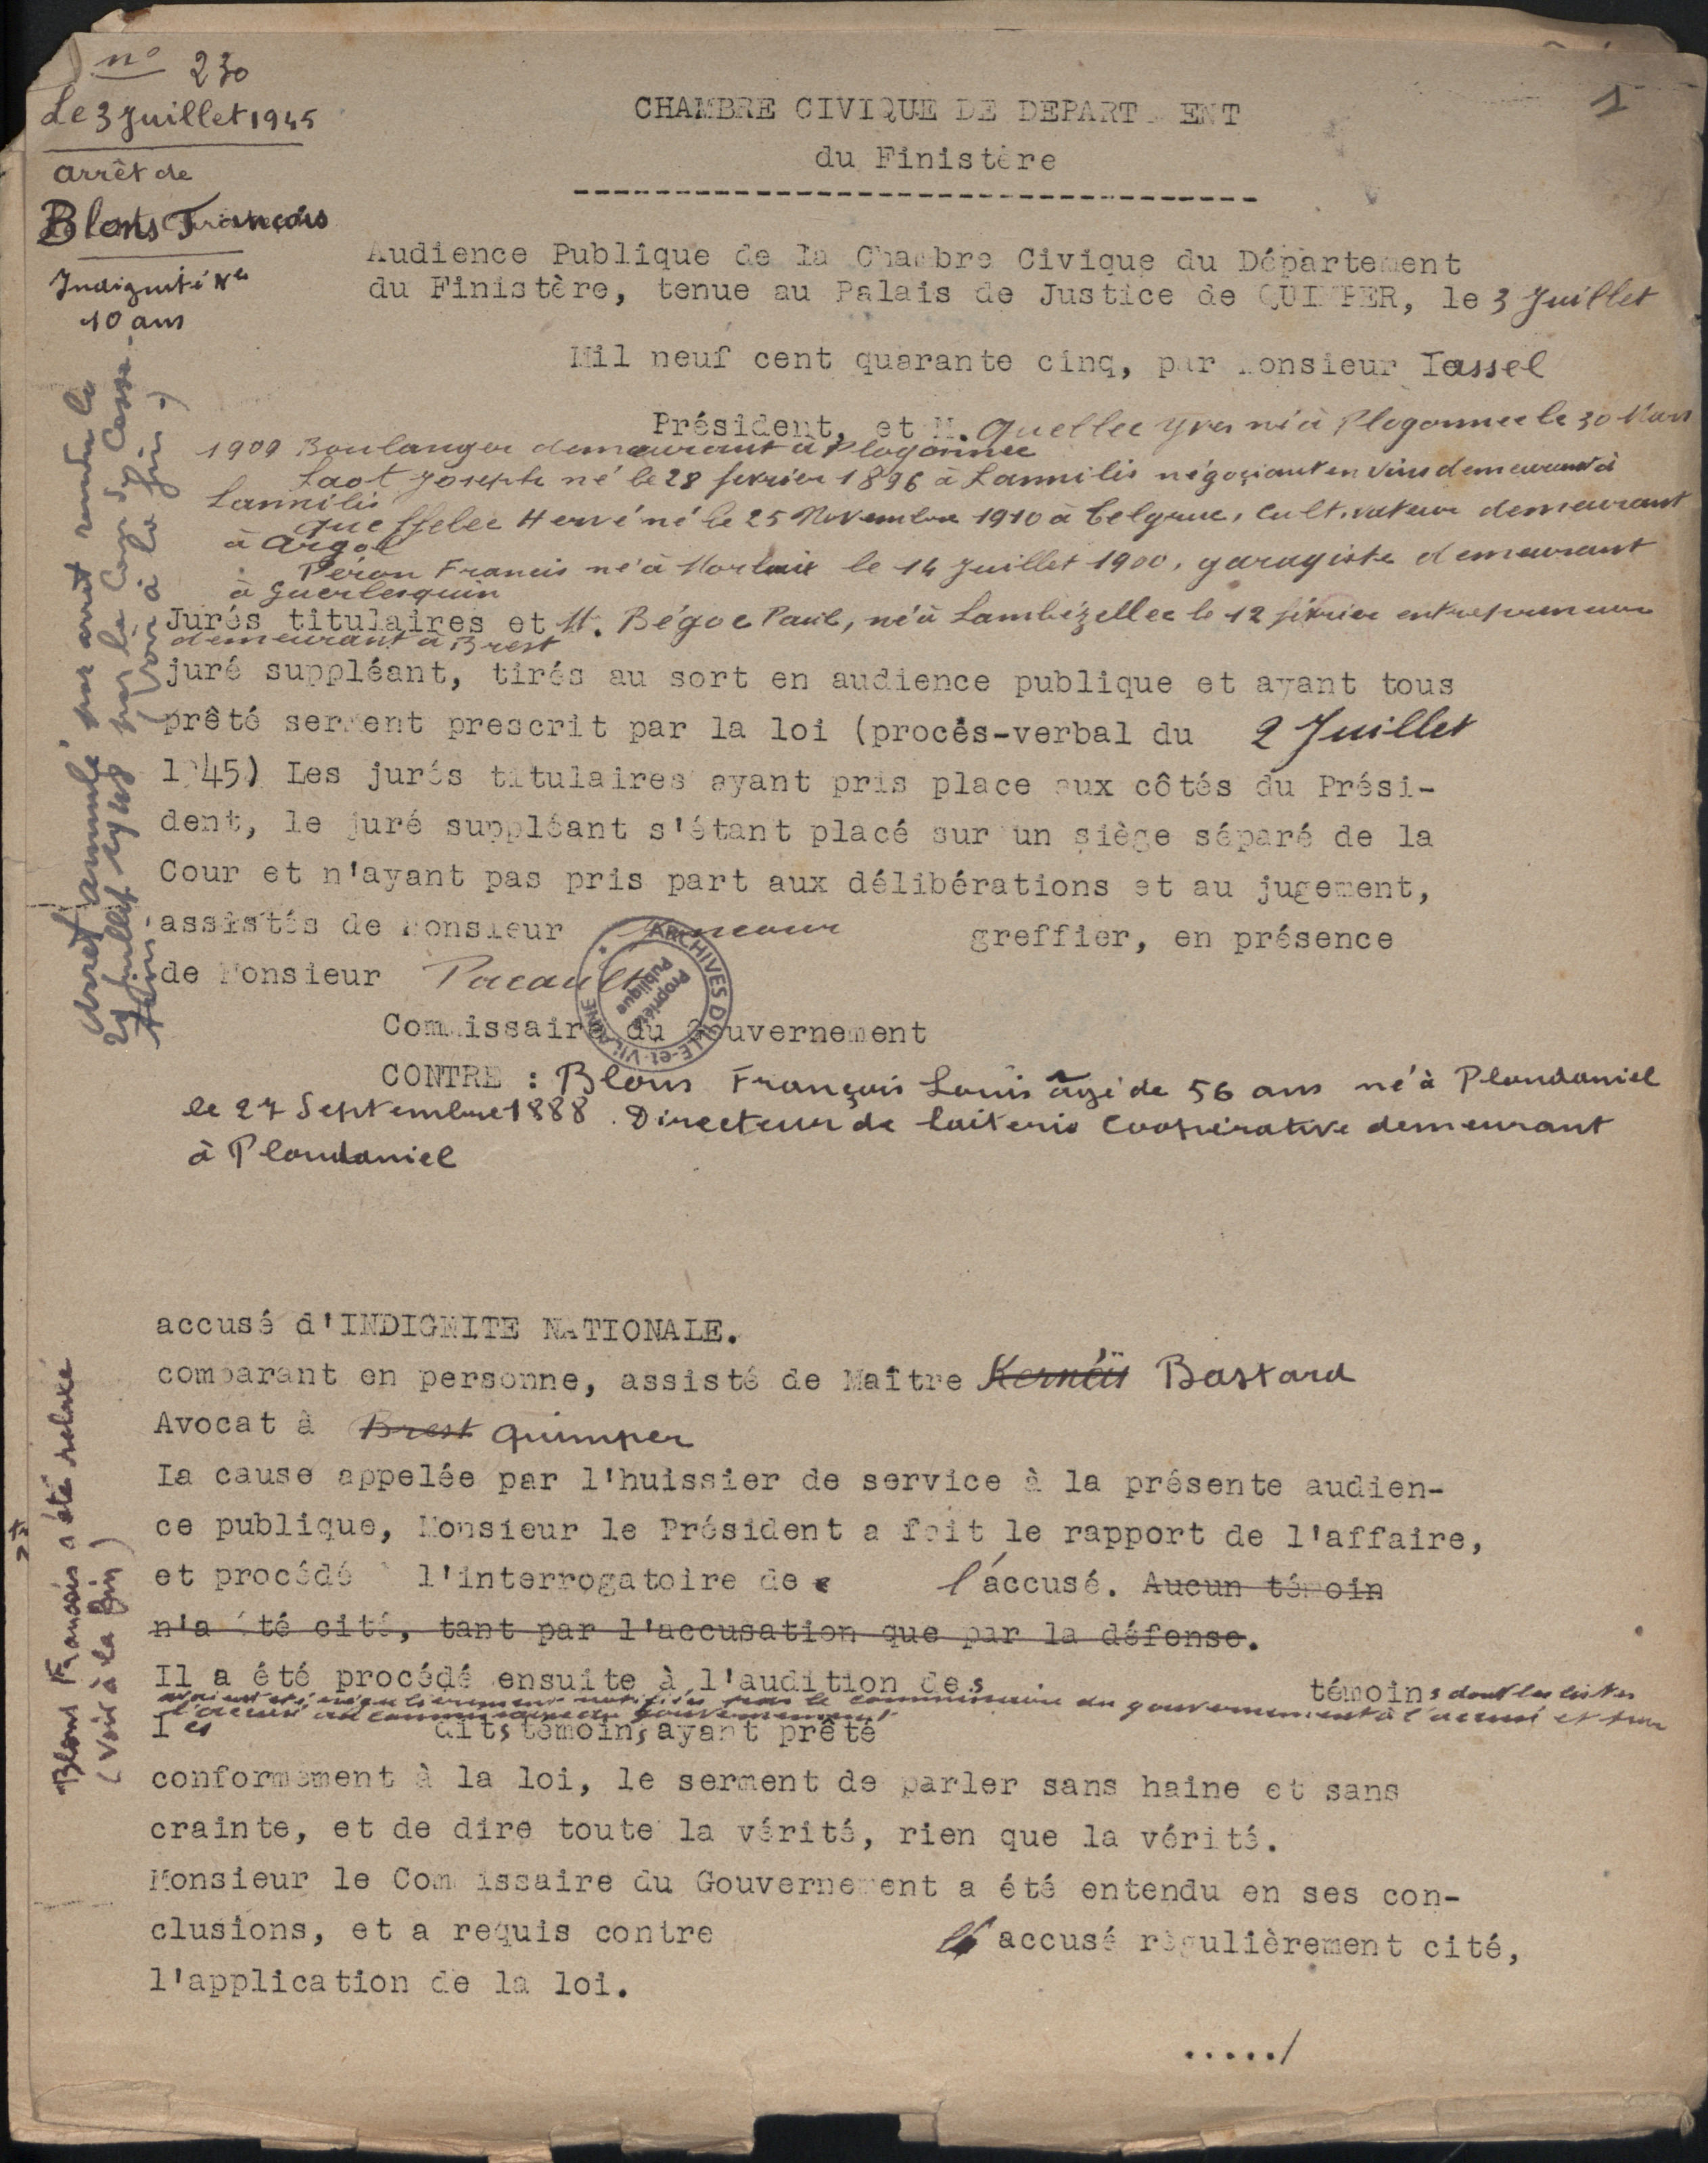 n° 230
Le 3 Juillet 1945
arrêt de
Blons François
Indignité Nle
10 ans
1
CHAMBRE CIVIQUE DE DEPART ENT
du Finistère
Audience Publique de la Chambre Civique du Département
du Finistère, tenue au Palais de Justice de QUIMPER, le 3 Juillet
Mil neuf cent quarante cinq, par Monsieur Tassel
Président, et M. Quellec Yves né à Plogonnec le 30 Mars
1909 Boulanger demeurant à Plogonnec
Laot Joseph né le 28 fevrier 1896 à Lannilis négoçiant en vins demeurant à
Lannilis
Queffelec Hervé né le 25 Novembre 1910 à Telgruc, Cultivateur demeurant
à Argol
Péron Francis né à Morlaix le 14 Juillet 1900, garagiste demeurant
à Guerlesquin
Jurés titulaires et M. Bégoc Paul, né à Lambézellec le 12 février entrepreneur
demeurant à Brest
juré suppléant, tirés au sort en audience publique et ayant tous
prêté serment prescrit par la loi (procès-verbal du 2 Juillet
1945) Les jurés titulaires ayant pris place aux côtés du Prési-
dent, le juré suppléant s'étant placé sur un siège séparé de la
Cour et n'ayant pas pris part aux délibérations et au jugement,
assistés de Monsieur greffier, en présence
de Monsieur Pacault
Commissaire du Gouvernement
ARCHIVES D'ILLE-et-VILAINE
Propriété
Publique
CONTRE : Blons François Louis âgé de 56 ans né à Ploudaniel
le 27 Septembre 1888. Directeur de laiterie Coopérative demeurant
à Ploudaniel
Arrêt annulé par arrêt rendu le
29 Juillet 1948 par la Cour de Cass.
(voir à la fin)
accusé d'INDIGNITE NATIONALE.
comparant en personne, assisté de Maître Kernéïs Bastard
Avocat à Brest Quimper
La cause appelée par l'huissier de service à la présente audien-
ce publique, Monsieur le Président a fait le rapport de l'affaire,
et procédé à l'interrogatoire de l'accusé. Aucun témoin
n'a été cité, tant par l'accusation que par la défense.
Il a été procédé ensuite à l'audition des témoins dont les listes
avaient été régulièrement notifiées par le commissaire du gouvernement à l'accusé et par
l'accusé au commissaire du gouvernement
Les dits témoins ayant prêté
conformément à la loi, le serment de parler sans haine et sans
crainte, et de dire toute la vérité, rien que la vérité.
Monsieur le Commissaire du Gouvernement a été entendu en ses con-
clusions, et a requis contre l'accusé régulièrement cité,
l'application de la loi.
...../
Blons François a été relaxé
(voir à la fin)